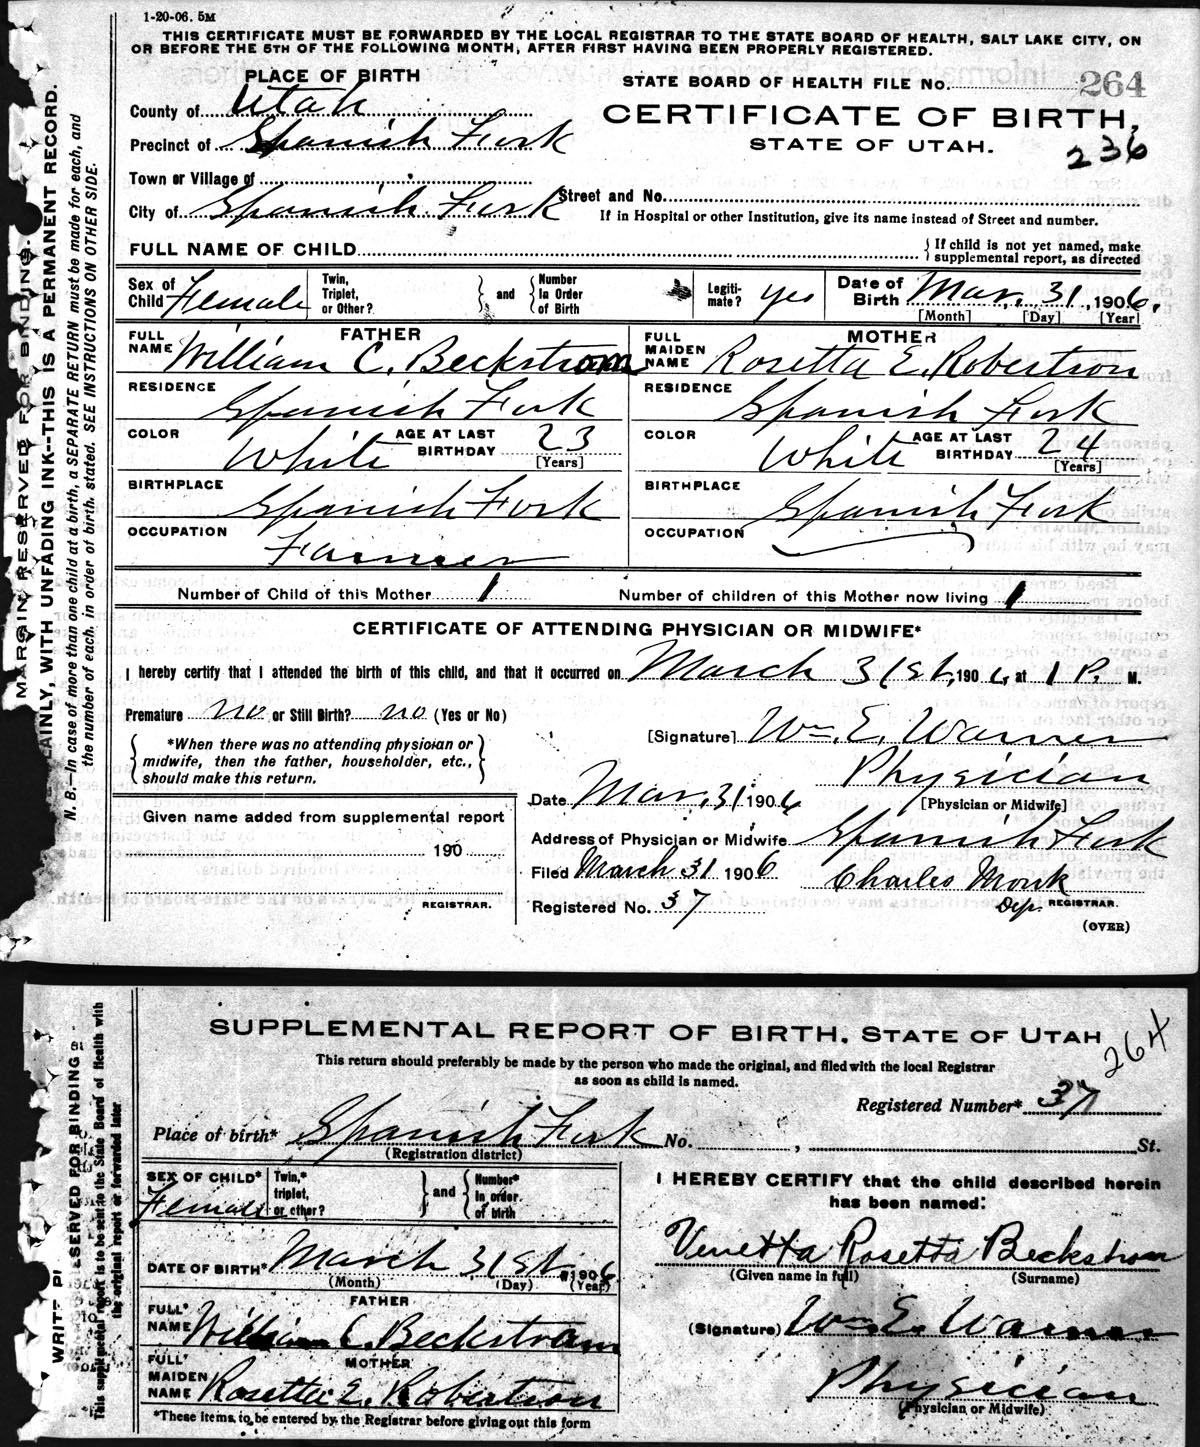 1-20-06. 5M
THIS CERTIFICATE MUST BE FORWARDED BY THE LOCAL REGISTRAR TO THE STATE BOARD OF HEALTH, SALT LAKE CITY, ON
OR BEFORE THE 5TH OF THE FOLLOWING MONTH, AFTER FIRST HAVING BEEN PROPERLY REGISTERED.
PLACE OF BIRTH
County of Utah
Precinct of Spanish Fork
Town or Village of
City of Spanish Fork
STATE BOARD OF HEALTH FILE No. 264
CERTIFICATE OF BIRTH,
STATE OF UTAH.
236
Street and No.
If in Hospital or other Institution, give its name instead of Street and number.
FULL NAME OF CHILD
If child is not yet named, make
supplemental report, as directed
Sex of Child Female
Twin, Triplet, or Other?
and
Number In Order of Birth
Legiti-mate? yes
Date of Birth Mar. 31, 1906.
[Month] [Day] [Year]
FATHER
FULL NAME William C. Beckstrom
RESIDENCE Spanish Fork
COLOR White AGE AT LAST BIRTHDAY 23
[Years]
BIRTHPLACE Spanish Fork
OCCUPATION Farmer
MOTHER
FULL MAIDEN NAME Rosetta E. Robertson
RESIDENCE Spanish Fork
COLOR White AGE AT LAST BIRTHDAY 24
[Years]
BIRTHPLACE Spanish Fork
OCCUPATION
Number of Child of this Mother 1 Number of children of this Mother now living 1
CERTIFICATE OF ATTENDING PHYSICIAN OR MIDWIFE*
I hereby certify that I attended the birth of this child, and that it occurred on March 31st, 1906, at 1 P. M.
Premature no or Still Birth? no (Yes or No)
*When there was no attending physician or
midwife, then the father, householder, etc.,
should make this return.
[Signature] Wm. E. Warner
Physician
[Physician or Midwife]
Date Mar. 31 1906
Address of Physician or Midwife Spanish Fork
Filed March 31 1906 Charles Monk
Dep. REGISTRAR.
Registered No. 37
(OVER)
Given name added from supplemental report
190
REGISTRAR.
MARGIN RESERVED FOR BINDING.
AINLY, WITH UNFADING INK--THIS IS A PERMANENT RECORD.
N. B.—In case of more than one child at a birth, a SEPARATE RETURN must be made for each, and
the number of each, in order of birth, stated. SEE INSTRUCTIONS ON OTHER SIDE.
SUPPLEMENTAL REPORT OF BIRTH, STATE OF UTAH
264
This return should preferably be made by the person who made the original, and filed with the local Registrar
as soon as child is named.
Registered Number* 37
Place of birth* Spanish Fork No. , St.
(Registration district)
SEX OF CHILD* Female
Twin,* triplet, or other?
and
Number* in order of birth
DATE OF BIRTH* March 31st 1906
(Month) (Day) (Year)
FATHER
FULL* NAME William C. Beckstrom
MOTHER
FULL* MAIDEN NAME Rosetta E. Robertson
*These items to be entered by the Registrar before giving out this form
I HEREBY CERTIFY that the child described herein
has been named:
Venetta Rosetta Beckstrom
(Given name in full) (Surname)
(Signature) Wm. E. Warner
Physician
(Physician or Midwife)
ESERVED FOR BINDING
WRITE PL
This supplemental report is to be sent to the State Board of Health with
the original report or forwarded later